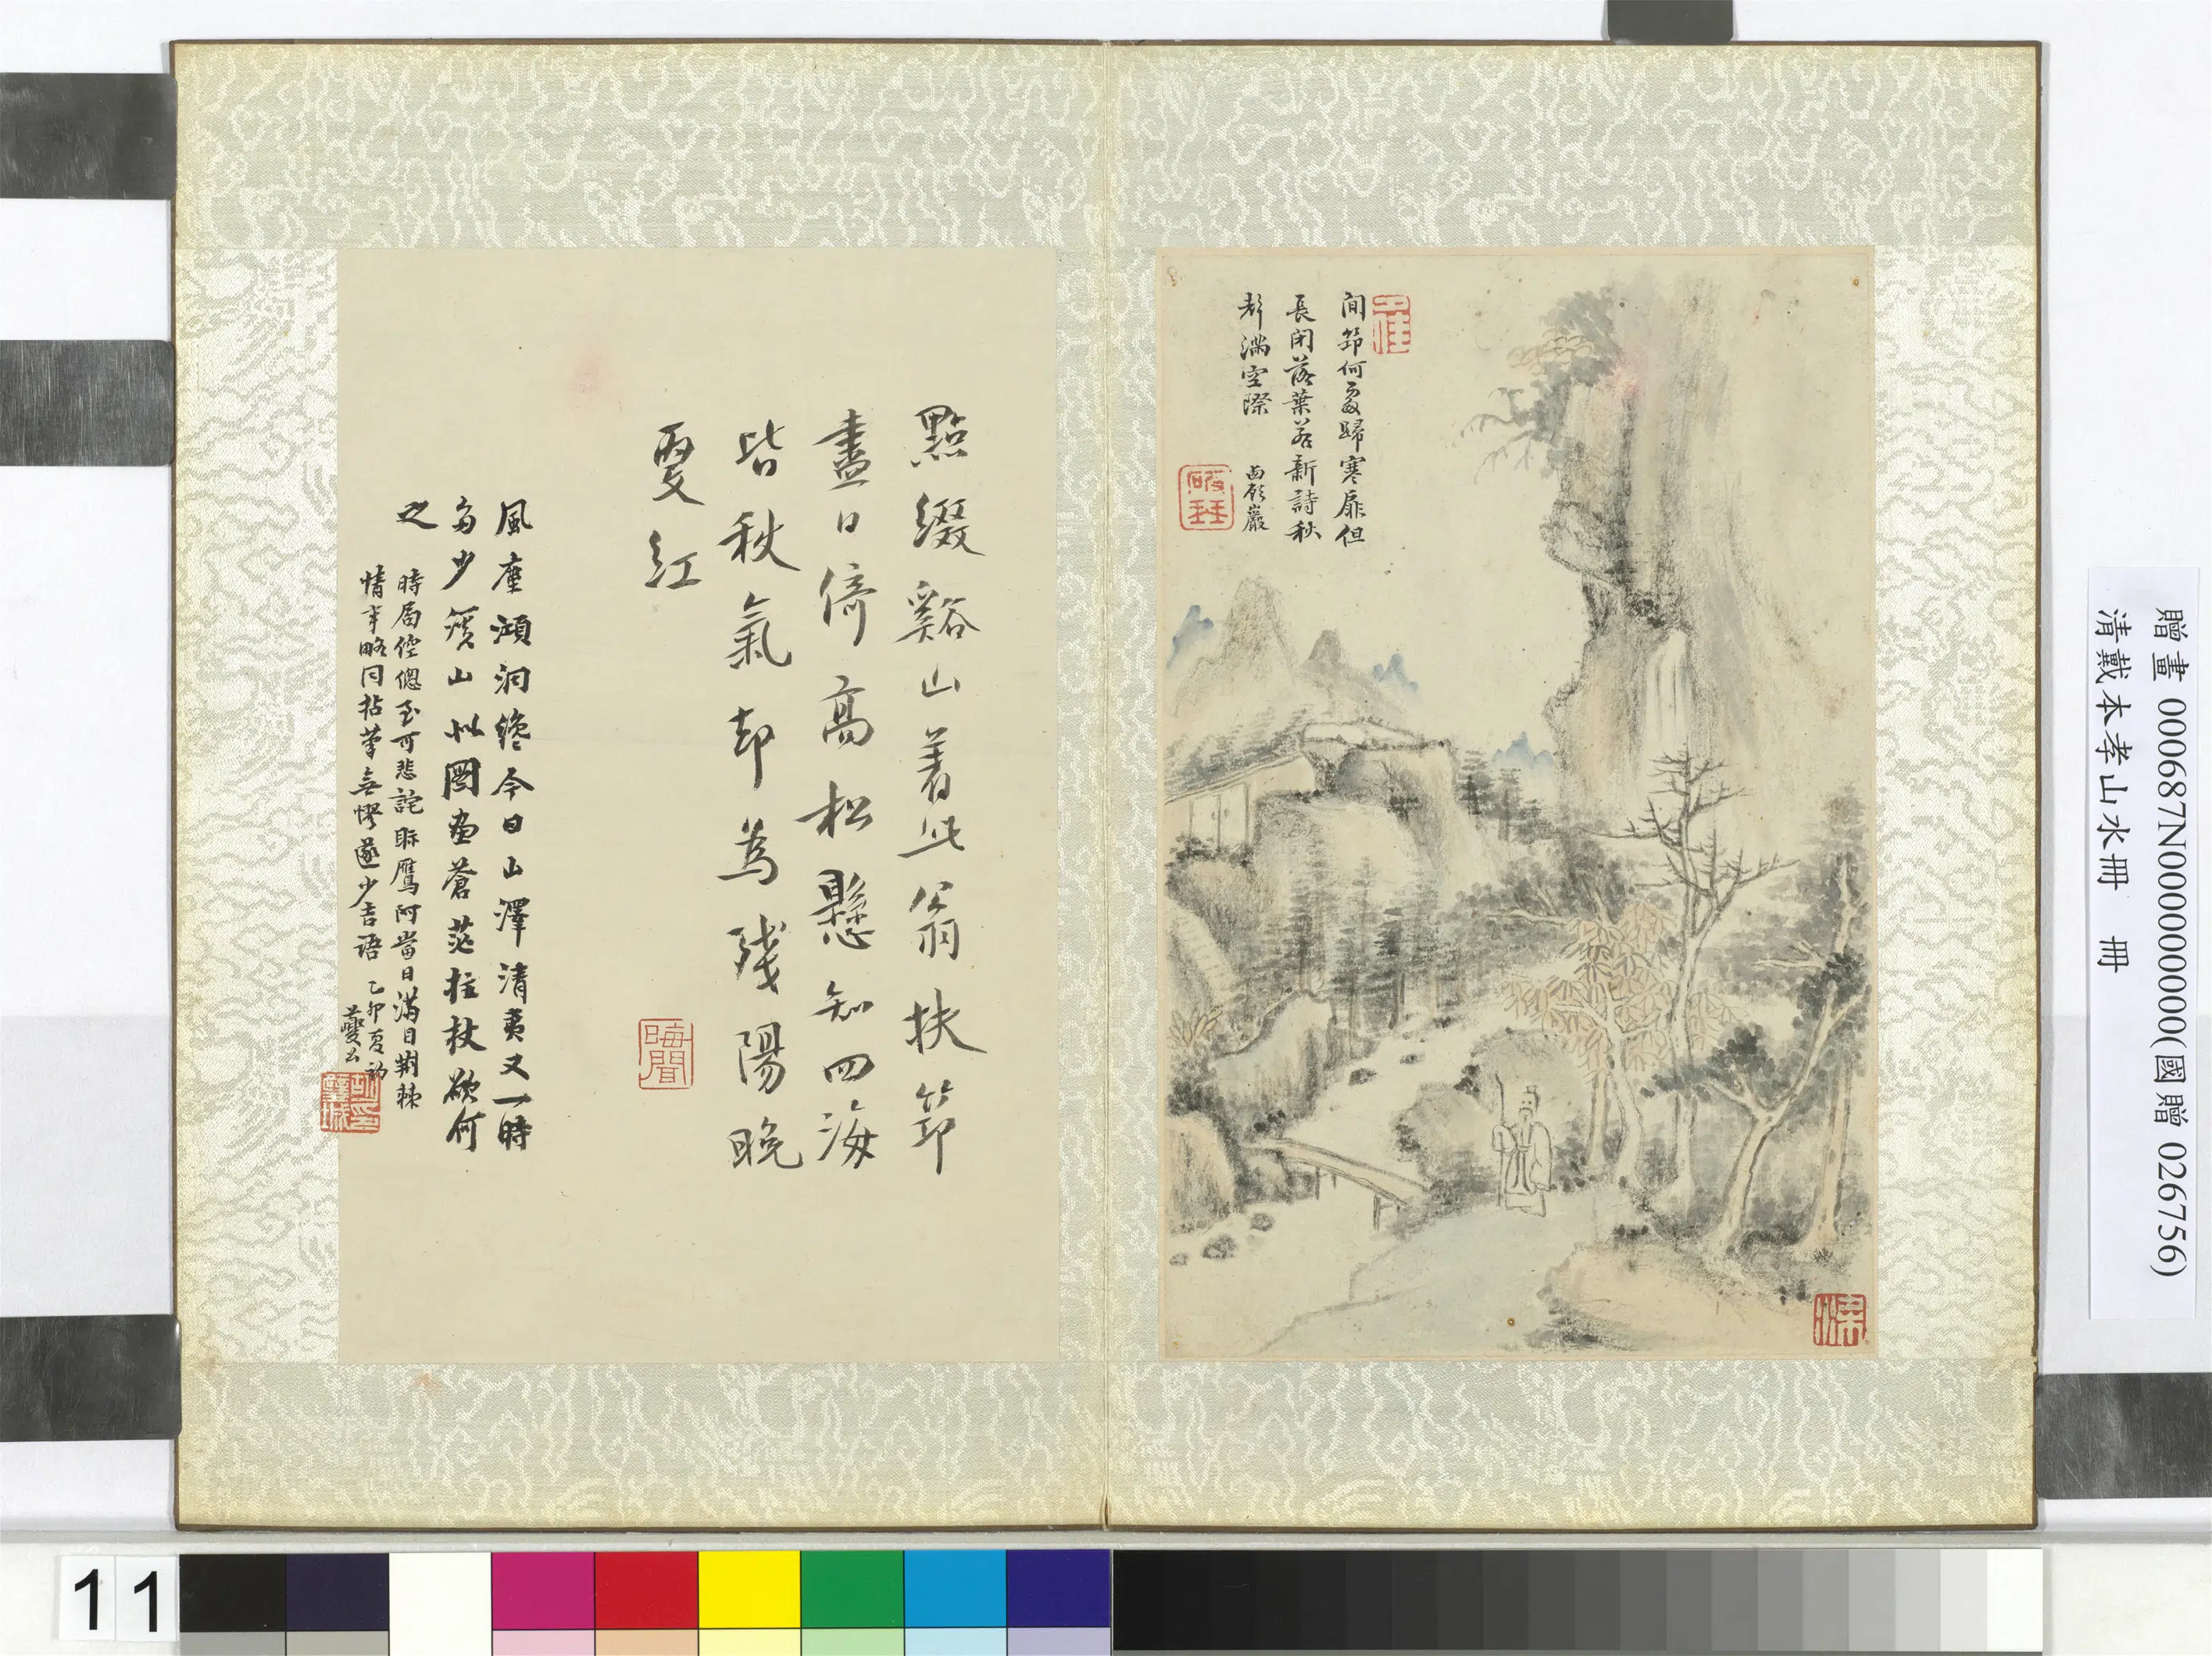 間筇何處歸寒扉但
長閉落葉若新詩秋
聲滿空際
點綴谿山著此翁扶筇
盡日倚高松懸知四海
皆秋氣却為殘陽晚
更紅
晦聞
風塵澒洞終今日山澤清夷又一時
多少溪山似圖畫蒼茫拄杖欲何
之
時局倥傯至可悲詫眎鷹阿當日滿目荊棘
情事略同拈筆無憀遂少吉語 乙卯夏初
夔公
贈畫 000687N000000000(國贈 026756)
清戴本孝山水冊 冊
11